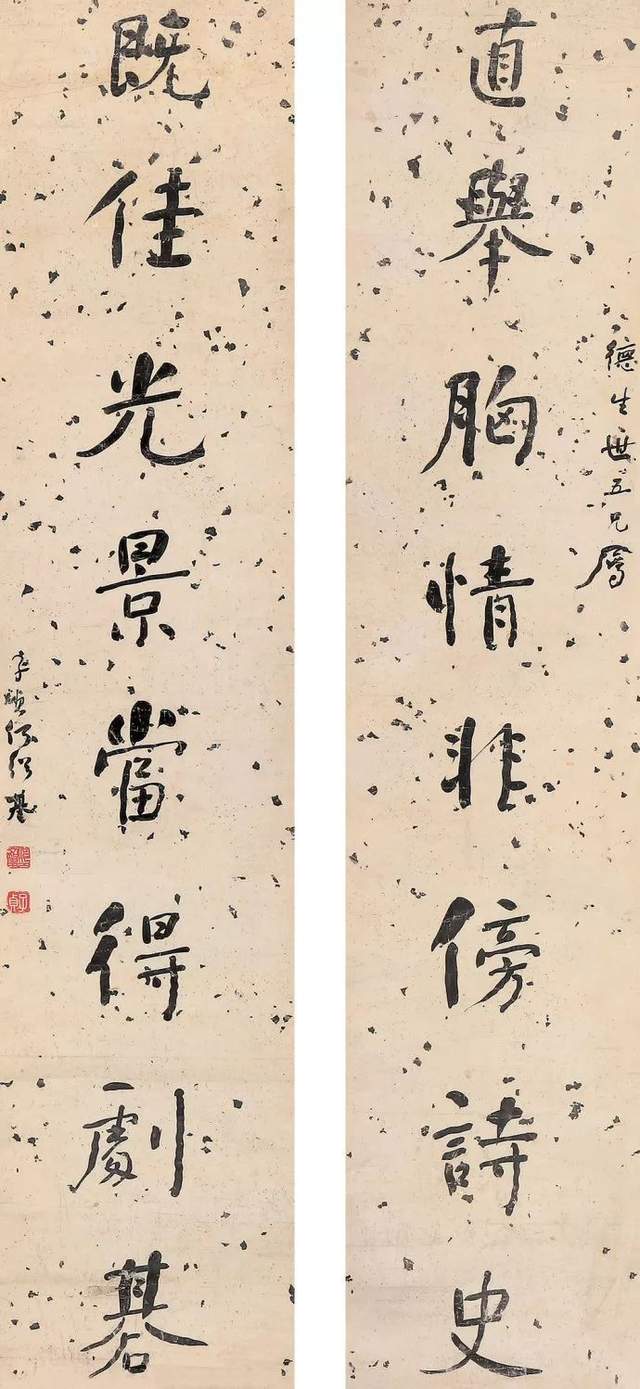 德生世五兄属
直舉胸情非傍詩史
既佳光景當得劇棊
子貞何紹基